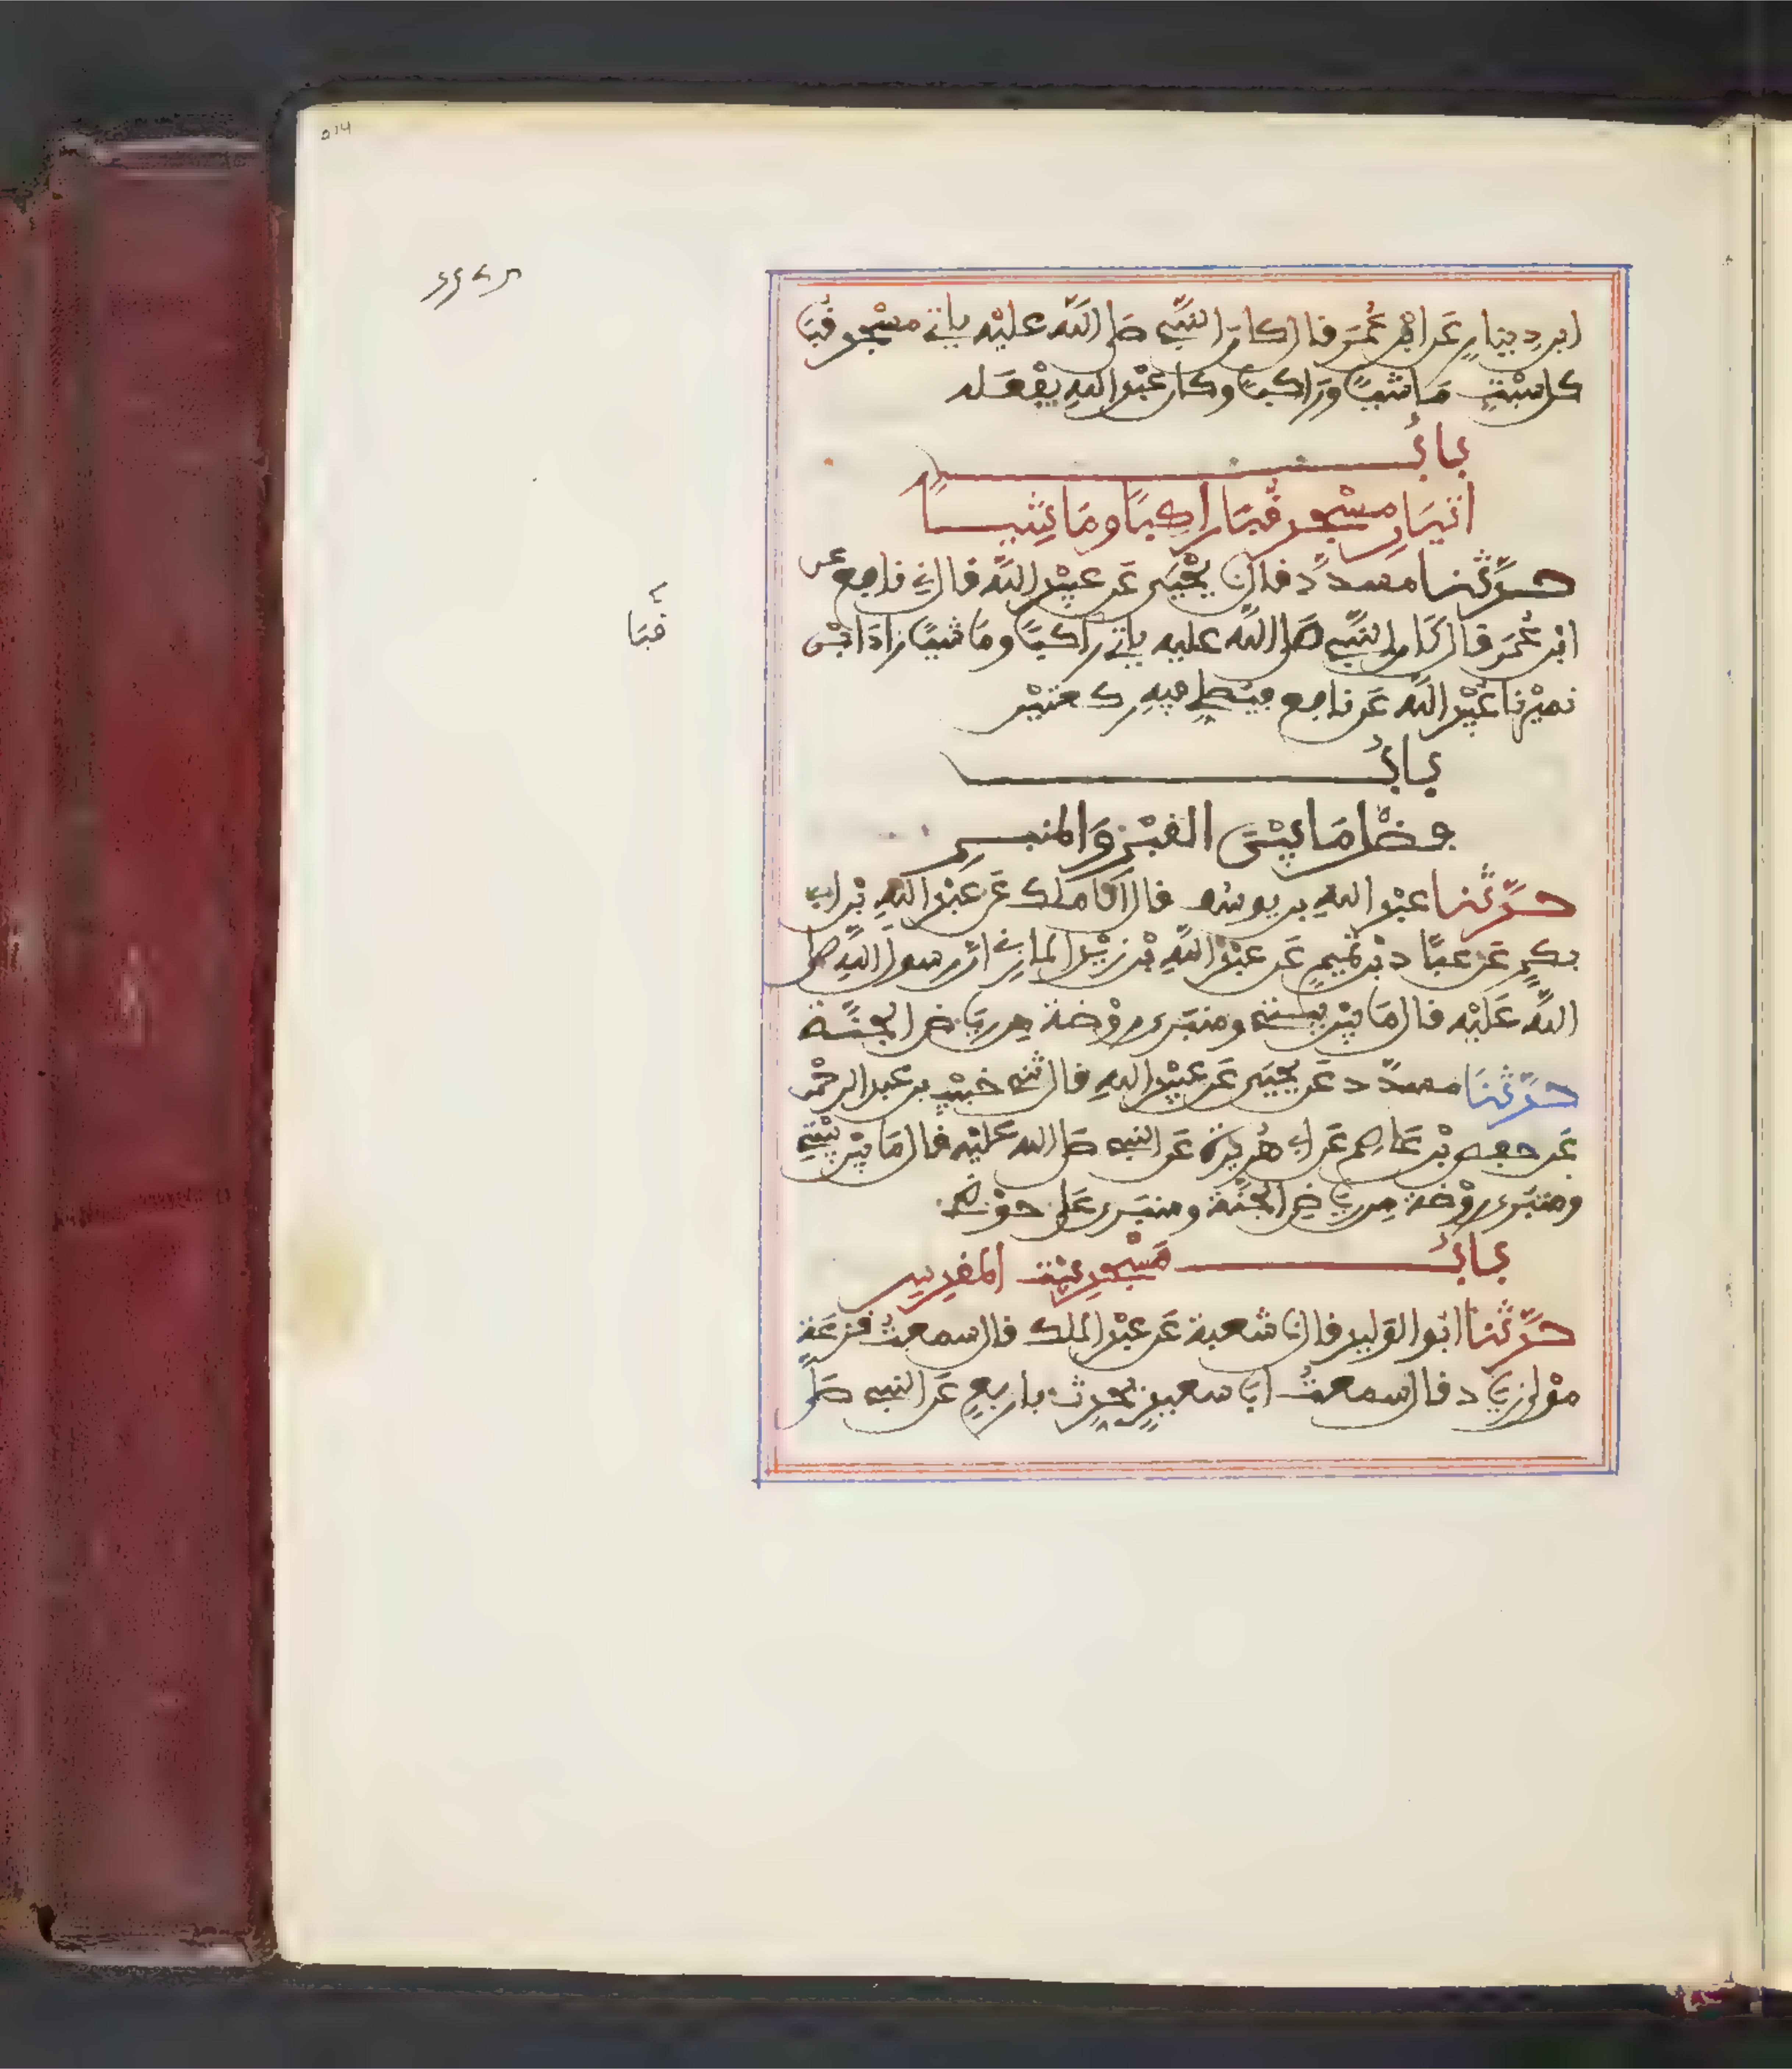 ابن دينار عن ابن عُمَرَ قال كان النبيّ صلى الله عليْه ياتي مسْجد قُبَا
كل سَبْتٍ مَاشيًا وَرَاكبًا وكان عبْد اللهِ يفْعَله
بابُ
اتيَانِ مسْجد قُبَا راكِبًا ومَاشِيًا
حدّثنا مسددٌ قال نا يحْيَى عَن عبيْد الله قال ني نافع عن
ابن عُمَر قال كان النبيّ صلى الله عليه ياتي راكبًا ومَاشيًا زادَ ابْن
نميْر نا عُبيْد الله عَن نافع فيُصَلي فيهِ ركعتيْن
بابُ
فضْل مَا بيْنَ القبْر وَالمنبر
حدّثنا عبْد اللهِ بن يوسف قال انا ملك عَن عبْد اللهِ بْن ابي
بكرٍ عَن عبّاد بْن تميمٍ عَن عبْد اللهِ بْن زيْد المازني ان رسول اللهِ صلى
الله عَليْه قال مَا بيْن بيتي ومنبَرى روْضة من ريَاض الجنّة
حدّثنَا مسدّد عَن يحيَى عَن عبيْد اللهِ قال ثني خبيْب بن عبد الرحْمن
عَن حفص بْن عَاصم عَن ابي هُريرة عَن النبي صلى الله عَليْه قال مَا بيْن بيْتي
ومنبَرى روْضة من ريَاض الجنّة ومنبَرى عَلى حوْضي
بابُ مَسْجد بيْت المقدس
حدّثنا ابُو الوَليد قال نا شعبة عَن عبْد الملك قال سمعتُ قزعَة
موْلى زيَاد قال سمعتُ ابَا سعيدٍ يُحدث باربعٍ عَن النبي صَلى
قُبَا